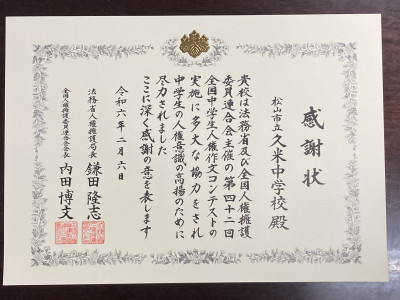 感謝状
松山市立久米中学校殿
貴校は法務省及び全国人権擁護
委員連合会主催の第四十二回
全国中学生人権作文コンテストの
実施に多大な協力をされ
中学生の人権意識の高揚のために
尽力されました
ここに深く感謝の意を表します
令和六年二月六日
法務省人権擁護局長 鎌田隆志
全国人権擁護委員連合会会長 内田博文